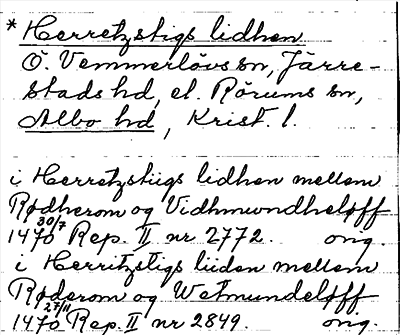 * Herretzstigs lidhen
Ö. Vemmerlövs sn, Järre-
stads hd, el. Rörums sn,
Albo hd, Krist. l.
i Herretzstiigs lidhen mellem
Rødherom og Vidhmwndheløff
1470 30/7 Rep. II nr 2772. orig.
i Herritzstigs liiden mellem
Røderom og Wetmundeløff
1470 27/11 Rep. II nr 2849. orig.